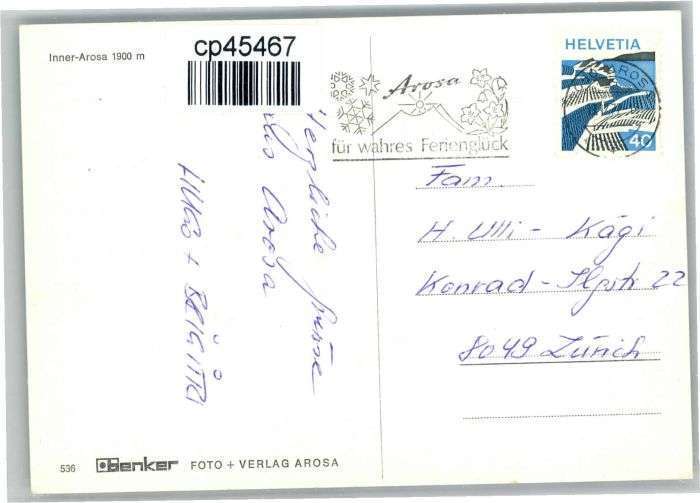 Inner-Arosa 1900 m
cp45467
Herzliche Grüsse
aus Arosa
HUGO + BRIGITTA
Arosa
für wahres Ferienglück
HELVETIA
AROS
40
Fam.
H. Ulli - Kägi
Konrad - Ilgstr 22
8049 Zürich
536 Benker FOTO + VERLAG AROSA